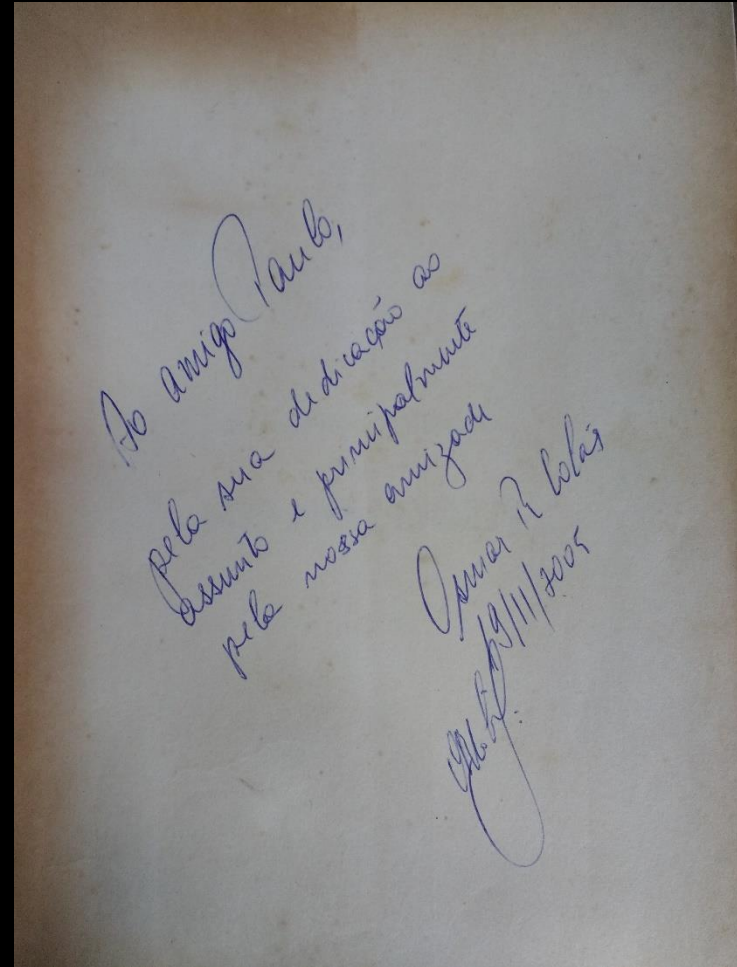 Ao amigo Paulo,
pela sua dedicação ao
assunto e principalmente
pela nossa amizade
Osmar R Colás
19/11/2005